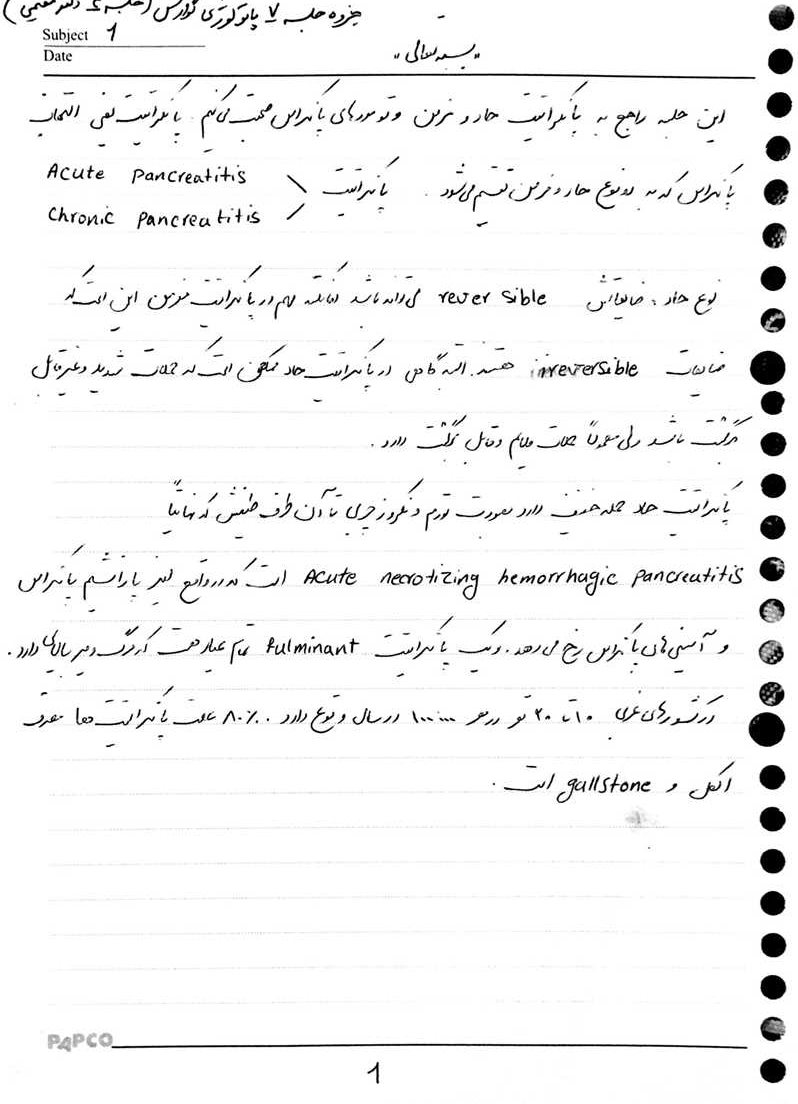 جزوه جلسه ۷ پاتولوژی گوارش (جلسه ۲ دکتر
Subject 1
Date
"بسمه تعالی"
این جلسه راجع به پانکراتیت حاد و مزمن و تومورهای پانکراس صحبت می‌کنیم. پانکراتیت یعنی التهاب
پانکراس که به دو نوع حاد و مزمن تقسیم می‌شود. پانکراتیت
Acute pancreatitis
Chronic pancreatitis
نوع حاد: ضایعاتش reversible می‌تواند باشد نکته مهم در پانکراتیت مزمن این است که
ضایعات irreversible هستند. البته گاهی در پانکراتیت حاد ممکن است که حملات شدید و غیرقابل
برگشت باشد ولی معمولاً حملات ملایم و قابل برگشت دارد.
پانکراتیت حاد حمله خفیف دارد بصورت تورم و نکروز چربی تا آن طرف طیفش که نهایتاً
Acute necrotizing hemorrhagic pancreatitis است که در واقع لیز پارانشیم پانکراس
و آسینی‌های پانکراس رخ می‌دهد. و یک پانکراتیت fulminant تمام عیار هست که مرگ و میر بالایی دارد.
در کشورهای غربی ۱۰ تا ۲۰ نفر در هر ۱۰۰۰۰۰ در سال وقوع دارد. ۸۰٪ علت پانکراتیت‌ها مصرف
الکل و gallstone است.
PAPCO
1